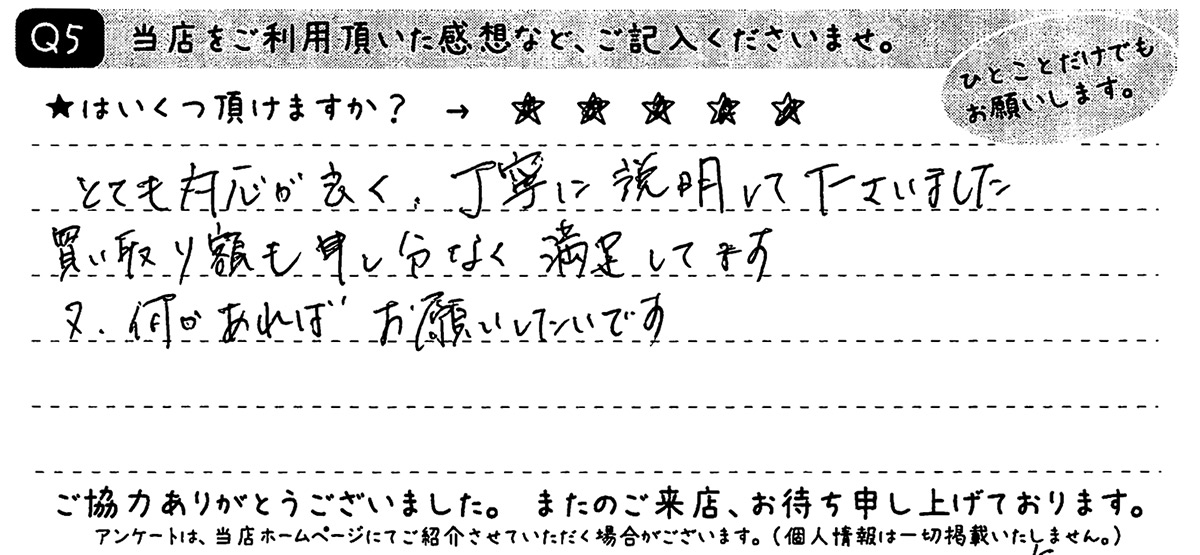 Q5 当店をご利用頂いた感想など、ご記入くださいませ。
ひとことだけでも
お願いします。
★はいくつ頂けますか? → ★ ★ ★ ★ ★
とても対応が良く、丁寧に説明して下さいました
買い取り額も申し分なく満足してます
又、何かあればお願いしたいです
ご協力ありがとうございました。 またのご来店、お待ち申し上げております。
アンケートは、当店ホームページにてご紹介させていただく場合がございます。(個人情報は一切掲載いたしません。)